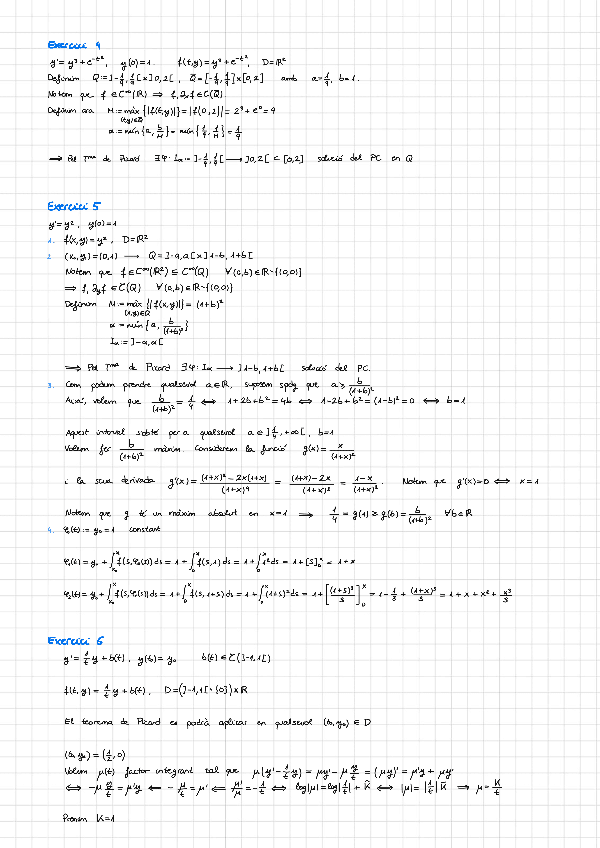 Exercici 4
y' = y³ + e^{-t²}, y(0) = 1. f(t,y) = y³ + e^{-t²}, D = ℝ²
Definim Q := ]-1/4, 1/4[ × ]0,2[, Q̄ = [-1/4, 1/4] × [0,2] amb a = 1/4, b = 1.
Notem que f ∈ C^∞(ℝ) ⟹ f, ∂yf ∈ C(Q)
Definim ara M := màx_{(t,y)∈Q̄} {|f(t,y)|} = |f(0,2)| = 2³ + e⁰ = 9
α := mín {a, b/M} = mín {1/4, 1/M} = 1/9
⟹ Pel Tma de Picard ∃φ: Iα := ]-1/9, 1/9[ ⟶ ]0,2[ ⊂ [0,2] solució del PC en Q
Exercici 5
y' = y², y(0) = 1
1. f(x,y) = y², D = ℝ²
2. (x₀,y₀) = (0,1) ⟶ Q = ]-a,a[ × ]1-b, 1+b[
Notem que f ∈ C^∞(ℝ²) ⊆ C^∞(Q) ∀(a,b) ∈ ℝ∖{(0,0)}
⟹ f, ∂yf ∈ C(Q) ∀(a,b) ∈ ℝ∖{(0,0)}
Definim M := màx_{(x,y)∈Q} {|f(x,y)|} = (1+b)²
α := mín {a, b/(1+b)²}
Iα := ]-α,α[
⟹ Pel Tma de Picard ∃φ: Iα ⟶ ]1-b, 1+b[ solució del PC.
3. Com podem prendre qualsevol a ∈ ℝ, suposem spdg que a ≥ b/(1+b)²
Així, volem que b/(1+b)² = 1/4 ⟺ 1+2b+b² = 4b ⟺ 1-2b+b² = (1-b)² = 0 ⟺ b = 1
Aquest interval s'obté per a qualsevol a ∈ ]1/4, +∞[, b = 1
Volem fer b/(1+b)² màxim. Considerem la funció g(x) = x/(1+x)²
i la seua derivada g'(x) = ((1+x)² - 2x(1+x))/(1+x)⁴ = ((1+x) - 2x)/(1+x)³ = (1-x)/(1+x)³. Notem que g'(x) = 0 ⟺ x = 1
Notem que g té un màxim absolut en x = 1 ⟹ 1/4 = g(1) ≥ g(b) = b/(1+b)² ∀b ∈ ℝ
4. φ₀(t) := y₀ = 1 constant
φ₁(t) = y₀ + ∫_{x₀}^{x} f(s,φ₀(s)) ds = 1 + ∫_0^x f(s,1) ds = 1 + ∫_0^x 1² ds = 1 + [s]_0^x = 1 + x
φ₂(t) = y₀ + ∫_{x₀}^{x} f(s,φ₁(s)) ds = 1 + ∫_0^x f(s,1+s) ds = 1 + ∫_0^x (1+s)² ds = 1 + [(1+s)³/3]_0^x = 1 - 1/3 + (1+x)³/3 = 1 + x + x² + x³/3
Exercici 6
y' = 1/t y + b(t), y(t₀) = y₀ b(t) ∈ C(]-1,1[)
f(t,y) = 1/t y + b(t), D = (]-1,1[∖{0}) × ℝ
El teorema de Picard es podrà aplicar en qualsevol (t₀,y₀) ∈ D
(t₀,y₀) = (1/2, 0)
Volem μ(t) factor integrant tal que μ(y' - 1/t y) = μy' - μ y/t = (μy)' = μ'y + μy'
⟺ -μ y/t = μ'y ⟸ -μ/t = μ' ⟸ μ'/μ = -1/t ⟺ log|μ| = log|1/t| + K̃ ⟺ |μ| = |1/t| K̄ ⟹ μ = K/t
Prenem K = 1